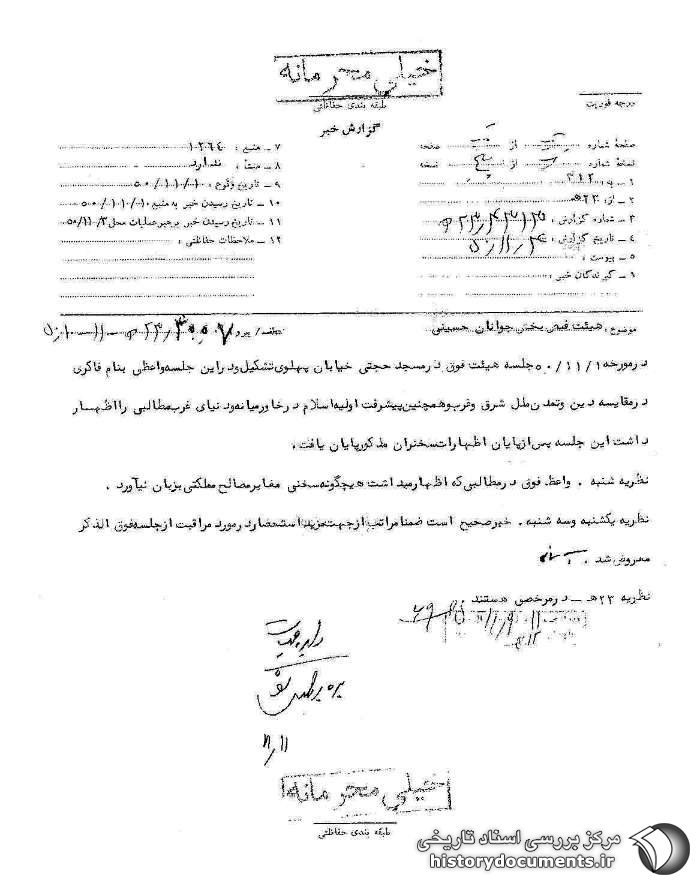 خیلی محرمانه
طبقه بندی حفاظتی
درجه فوریت
گزارش خبر
صفحهٔ شماره از صفحه
نسخهٔ شماره از نسخه
۱ ـ به: ۳۱۲
۲ ـ از: ۲۳ه
۳ ـ شماره گزارش:
۴ ـ تاریخ گزارش:
۵ ـ پیوست:
۶ ـ گیرندگان خبر:
۷ ـ منبع: ۱۰۲۶۴
۸ ـ منشأ: ندارد
۹ ـ تاریخ وقوع:
۱۰ ـ تاریخ رسیدن خبر به منبع:
۱۱ ـ تاریخ رسیدن خبر به رهبر عملیات محل: ۵۰/۱۱/۳
۱۲ ـ ملاحظات حفاظتی:
موضوع: هیئت فیض بخش جوانان حسینی
درمورخه ۵۰/۱۱/۱ جلسه هیئت فوق درمسجد حجتی خیابان پهلوی تشکیل ودراین جلسه واعظی بنام فاکری
درمقایسه دین وتمدن ملل شرق وغرب وهمچنین پیشرفت اولیه اسلام درخاورمیانه ودنیای غرب مطالبی رااظهار
داشت این جلسه پس ازپایان اظهارات سخنران مذکورپایان یافت.
نظریه شنبه . واعظ فوق درمطالبی که اظهارمیداشت هیچگونه سخنی مغایرمصالح مملکتی بزبان نیآورد .
نظریه یکشنبه وسه شنبه . خبرصحیح است ضمنا مراتب ازجهت مزید استحضاردرمورد مراقبت ازجلسه فوق الذکر
معروض شد .
نظریه ۲۳هـ ـ درمرخصی هستند
۱۱/۱۱
خیلی محرمانه
طبقه بندی حفاظتی
مرکز بررسی اسناد تاریخی
historydocuments.ir